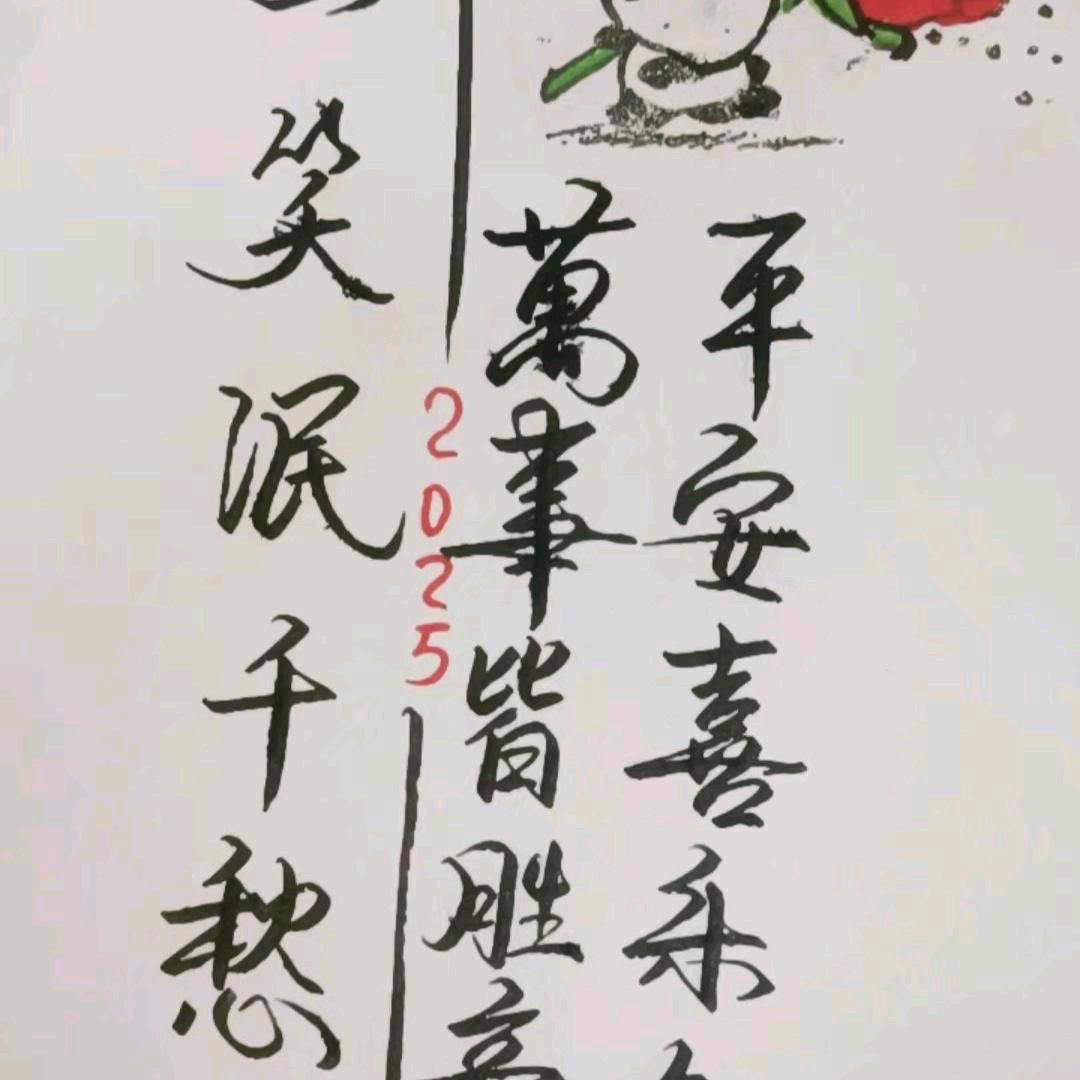 平安喜乐
萬事皆胜
2025
笑泯千愁